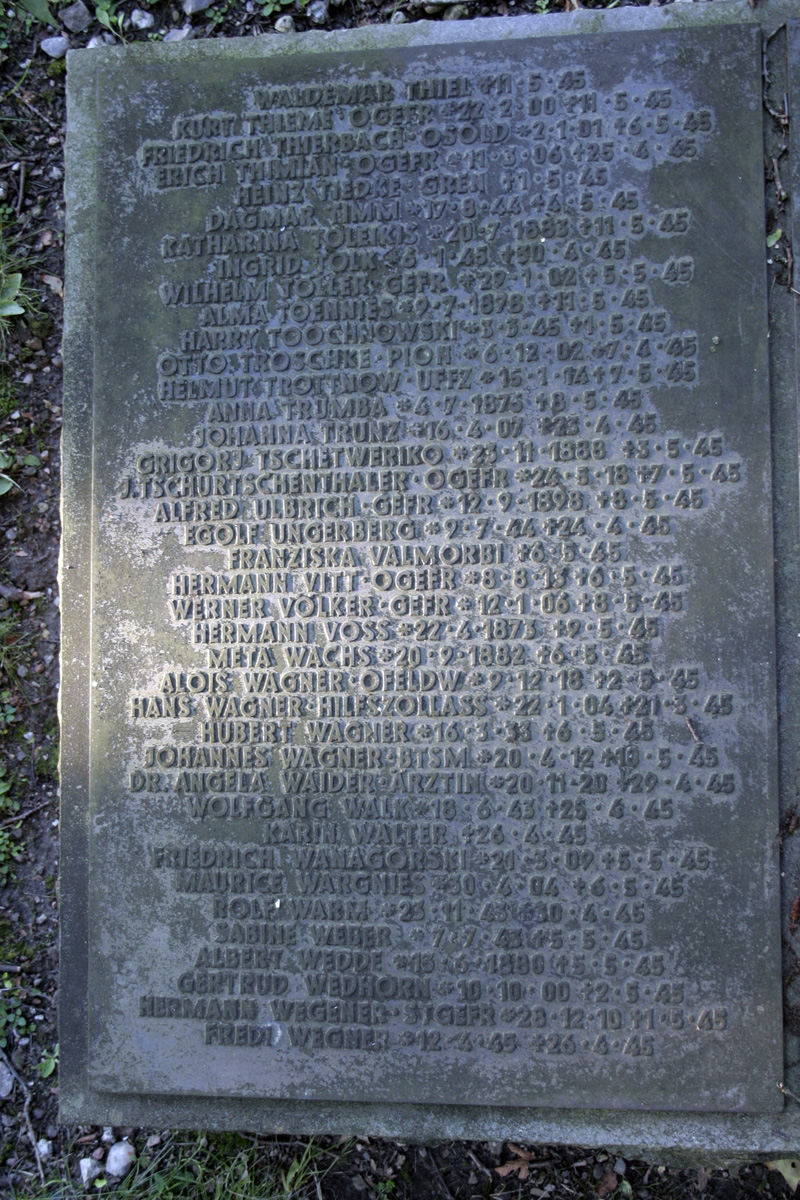 WALDEMAR THIEL ✝11·5·45
KURT THIEME·OGEFR✶22·2·00✝11·5·45
FRIEDRICH THIERBACH·OSOLD✶2·1·01✝6·5·45
ERICH THIMIAN·OGEFR✶11·3·06✝25·4·45
HEINZ TIEDKE·GREN ✝1·5·45
DAGMAR TIMM✶17·8·44✝6·5·45
KATHARINA TOLEIKIS✶20·7·1883✝11·5·45
INGRID TOLK✶6·1·45✝30·4·45
WILHELM TOLLER·GEFR✶29·1·02✝5·5·45
ALMA TOENNIES✶9·7·1878✝11·5·45
HARRY TOOCHNOWSKI✶3·3·45✝1·5·45
OTTO TROSCHKE·PION✶6·12·02✝7·4·45
HELMUT TROTTNOW·UFFZ✶15·1·14✝7·5·45
ANNA TRUMBA✶4·7·1876✝8·5·45
JOHANNA TRUNZ✶16·4·07✝23·4·45
GRIGORJ TSCHETWERIKO✶25·11·1888✝3·5·45
J.TSCHURTSCHENTHALER·OGEFR✶24·5·18✝7·5·45
ALFRED ULBRICH·GEFR✶12·9·1898✝8·5·45
EGOLF UNGERBERG✶9·7·44✝24·4·45
FRANZISKA VALMORBI ✝6·5·45
HERMANN VITT·OGEFR✶8·8·13✝6·5·45
WERNER VÖLKER·GEFR✶12·1·06✝8·5·45
HERMANN VOSS✶22·4·1873✝9·5·45
META WACHS✶20·9·1882✝6·5·45
ALOIS WAGNER·OFELDW✶9·12·18✝2·5·45
HANS WAGNER·HILFSZOLLASS✶22·1·04✝21·3·45
HUBERT WAGNER✶16·3·33✝6·5·45
JOHANNES WAGNER·BTSM✶20·4·12✝18·5·45
DR.ANGELA WAIDER·ÄRZTIN✶20·11·20✝29·4·45
WOLFGANG WALK✶18·6·43✝25·4·45
KARIN WALTER ✝26·4·45
FRIEDRICH WANAGORSKI✶21·3·09✝5·5·45
MAURICE WARGNIES✶30·4·04✝6·5·45
ROLF WARM✶23·11·43✝30·4·45
SABINE WEBER✶7·7·43✝5·5·45
ALBERT WEDDE✶13·6·1880✝5·5·45
GERTRUD WEDHORN✶10·10·00✝2·5·45
HERMANN WEGENER·STGEFR✶28·12·10✝1·5·45
FREDI WEGNER✶12·4·45✝26·4·45